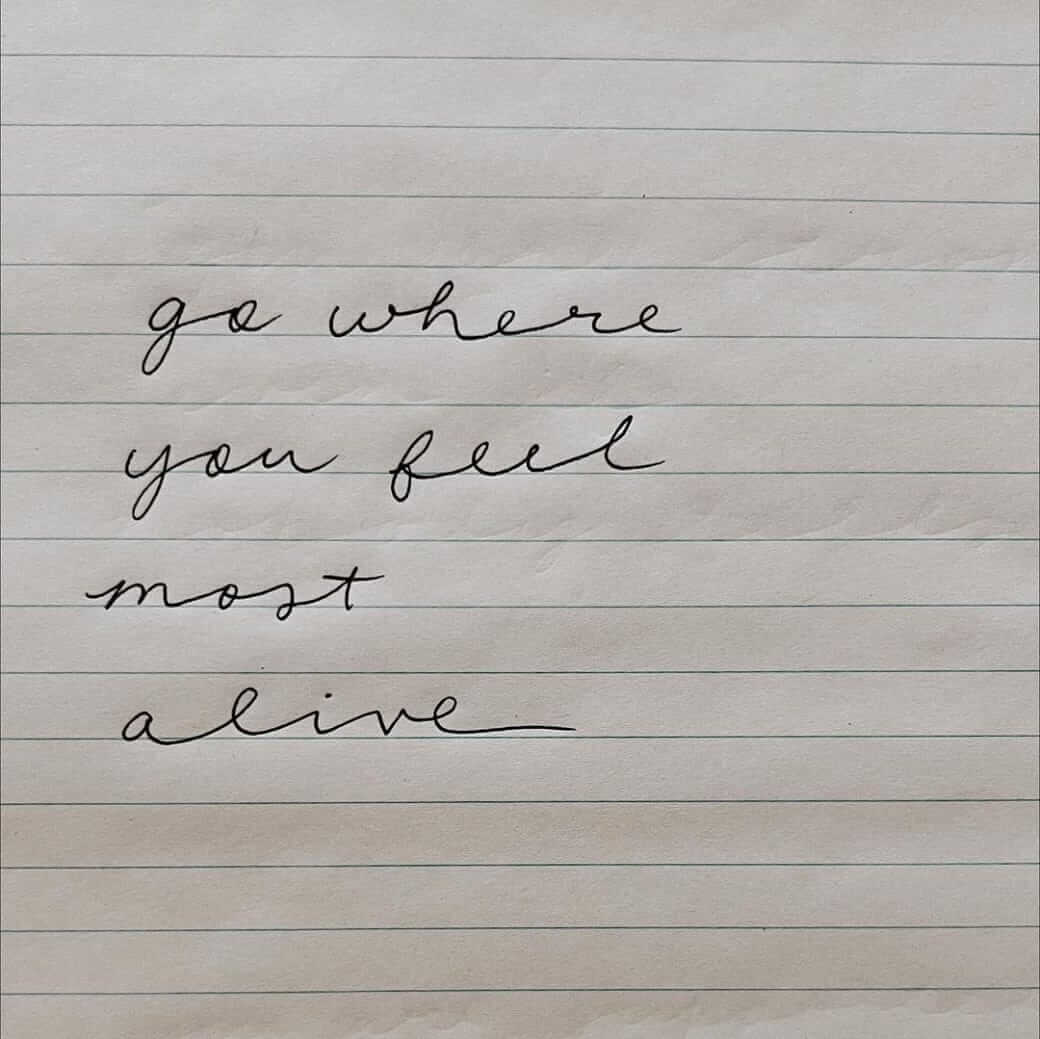 go where
you feel
most
alive